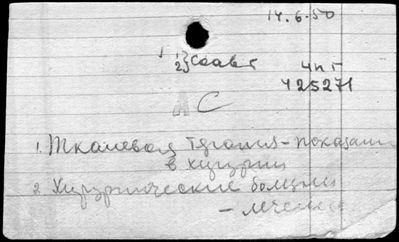 14.6.50
1
2} Соавт
425271
С
1. Тканевая терапия - показания
в хирургии
2. Хирургические болезни
- лечение